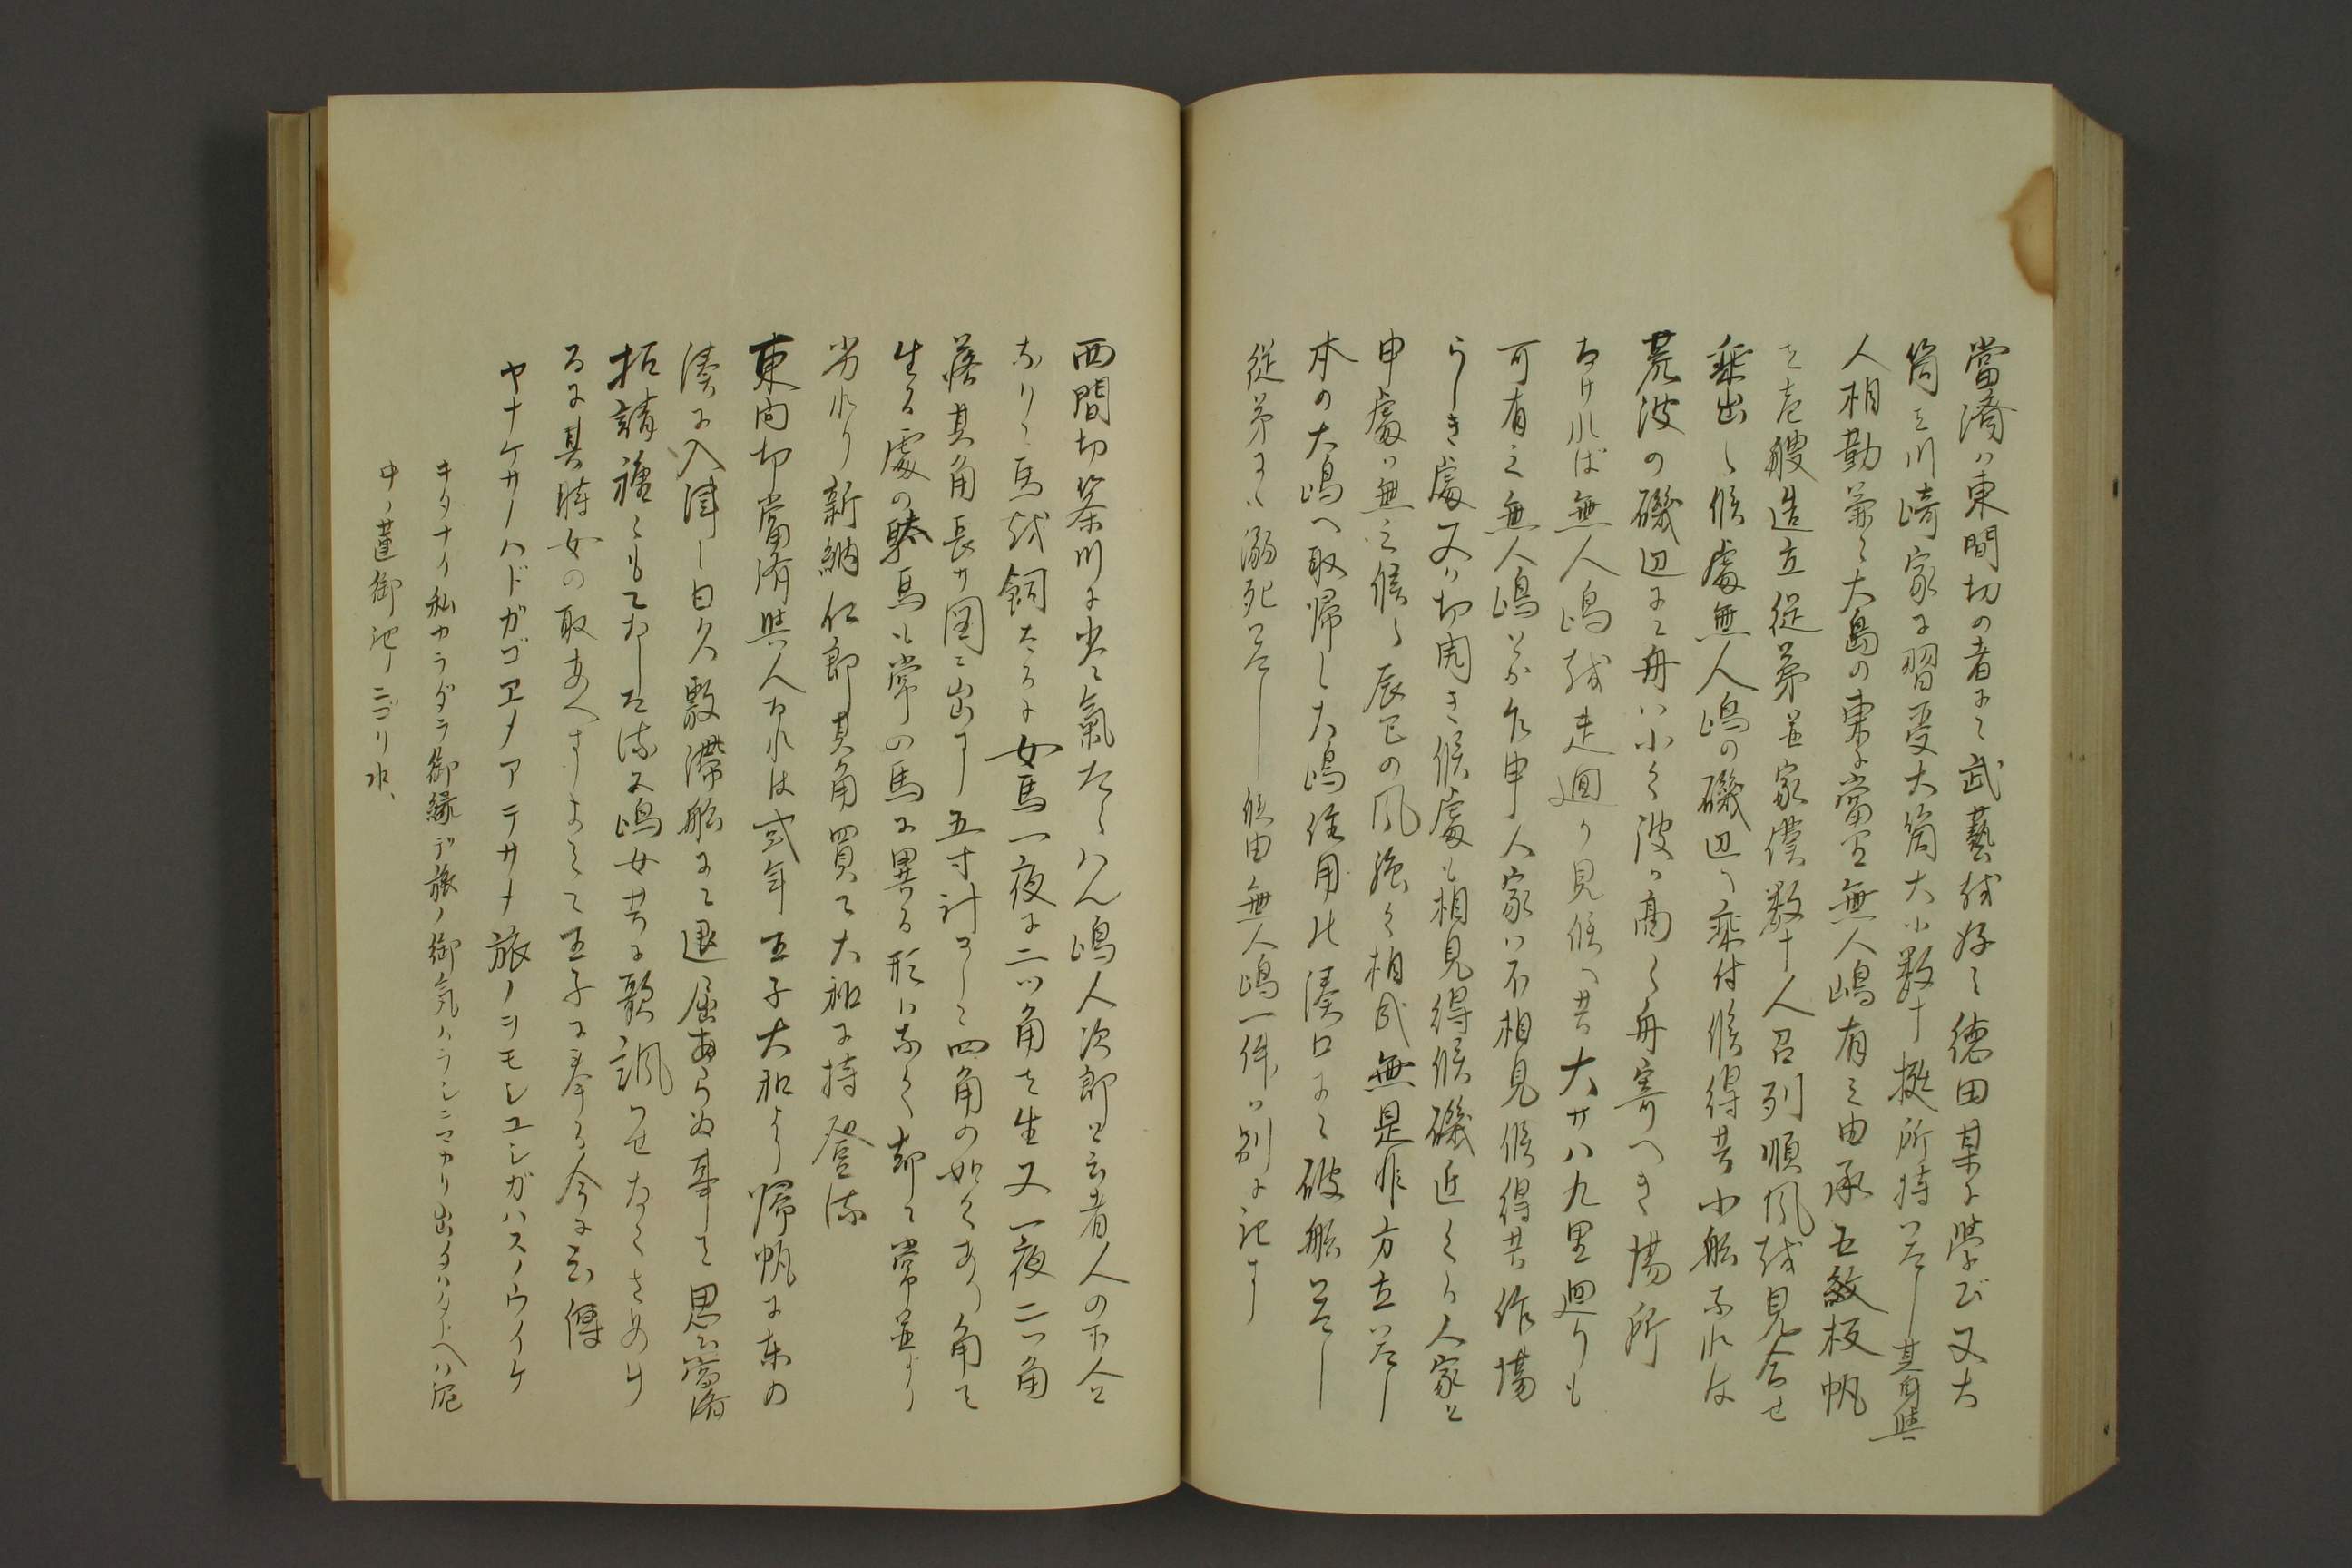 當濟ハ東間切の者ニて武藝越好て徳田某に學び又大
筒を川崎家に習受大筒大小数十挺所持いたし其身與
人相勤兼て大島の東に當里無人嶋有之由承五敷板帆
を壱艘造立従弟並家僕数十人召列順風越見合せ
乗出し候處無人嶋の磯辺へ乗付候得共小船なれは
荒波の磯辺にて舟ハ小く波ハ高く舟寄へき場所
なけれは無人嶋越走廻り見候へ共大サ八九里廻りも
可有之無人嶋とか乍申人家ハ不相見候得共作場
らしき處又ハ切開き候處も相見得候磯近くニ人家と
申處ハ無之候し辰巳の風強く相成無是非方立いたし
本の大嶋へ取帰し大嶋住用の湊口にて破船いたし
従弟は溺死いたし候由無人嶋一件ハ別に記す
西間切篠川に當氣たらはん嶋人次郎と云者人の下人と
なりて馬越飼たるに女馬一夜に二ツ角を生又一夜二ツ角
落其角長サ図に出す五寸計にして四角の如くあり角を
生る處の馬も常の馬に異る形ハなく却て常並より
劣れり新納仁郎其角買て大和に持登流
東間切當濟與人なれは弐年王子大和より帰帆に東の
湊に入津し日久敷滞船にて退屈あらぬ事を思ひ當濟
招請種々もてなしたまに嶋女共に歌諷わせなくさめけ
るに其時女の取あへすよミて王子に奉る今に云傳
ヤナケサノハドガゴヱノアテサメ旅ノシモシユシガハスノウイケ
キタナイ私カラダヲ御縁デ旅ノ御気ハラシニマカリ出タハタトヘハ泥
中ノ蓮御池ノニゴリ水、